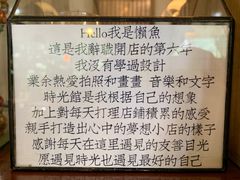 Hello我是懶魚
這是我辭職開店的第六年
我沒有學過設計
業余熱愛拍照和畫畫 音樂和文字
時光館是我根据自己的想象
加上對每天打理店鋪積累的感愛
親手打造出心中的夢想小店的樣子
感謝每天在這里遇見的友善目光
愿遇見時光也遇見最好的自己